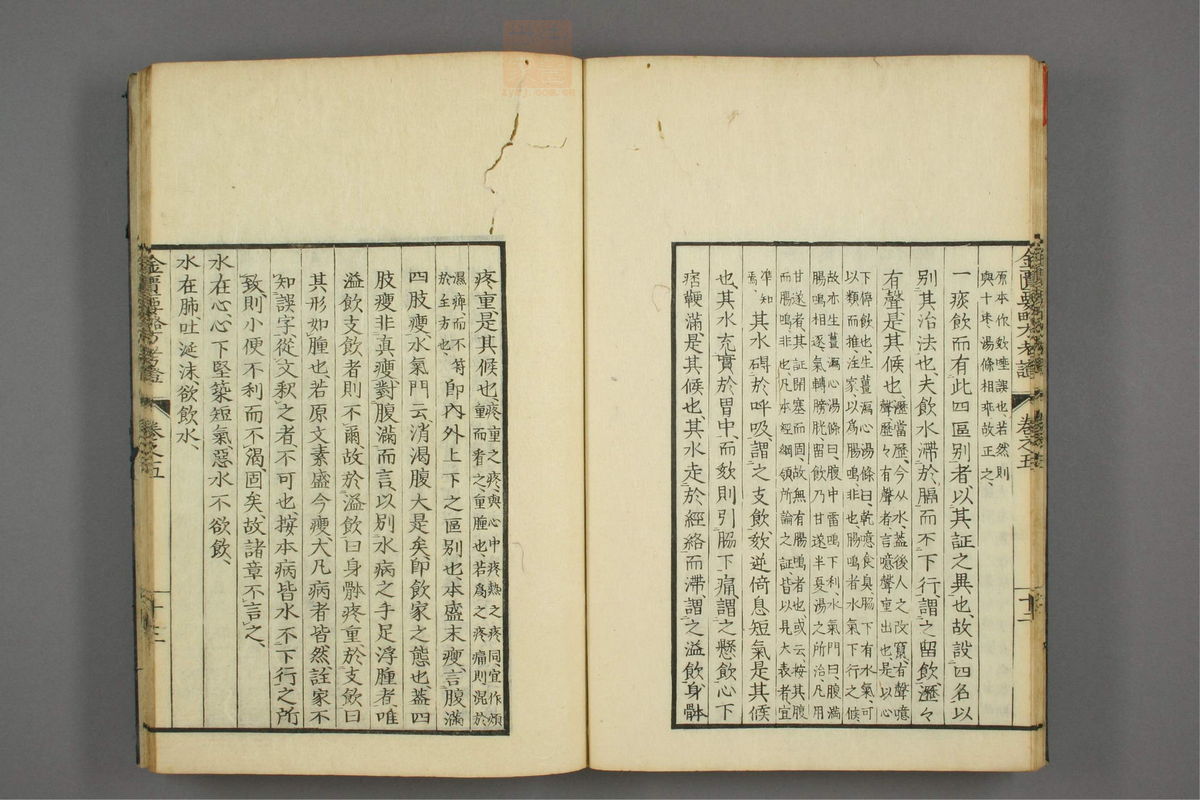 原本作欬唾誤也若然則
與十枣湯條相乖故正之
一痰飲而有此四區别者以其証之異也故設四名以
别其治法也夫飲水滞於膈而不下行謂之留飲瀝々
有聲是其候也
瀝當歷今从水蓋後人之改竄有聲噫
聲歷々有聲者言噫聲重出也是以心
下停飲也生薑瀉心湯條曰乾噫食臭脇下有水氣可
以類而推注家以爲腸鳴非也腸鳴者水氣下行之候
故亦生薑瀉心湯條曰腹中雷鳴下利水氣門曰腹満
腸鳴相逐氣轉膀胱留飲乃甘遂半夏湯之所治凡用
甘遂者其証閉塞而固故無有腸鳴者也或云按其腹
而腸鳴非也凡本經綱領所論之証皆以見大表者宜
準知
焉
其水碍於呼吸謂之支飲欬逆倚息短氣是其候
也其水充實於胃中而欬則引脇下痛謂之懸飲心下
痞鞕滿是其候也其水走於經絡而滞謂之溢飲身骵
疼重是其候也
疼重之疼與心中疼熱之疼同宜作煩
重而看之重腫也若爲之疼痛則混於
濕痺而不符
於主方也
卽内外上下之區别也本盛末瘦言腹滿
四肢瘦水氣門云消渴腹大是矣卽飲家之態也蓋四
肢瘦非真瘦對腹滿而言以别水病之手足浮腫者唯
溢飲支飲者則不爾故於溢飲曰身骵疼重於支飲曰
其形如腫也若原文素盛今瘦大凡病者皆然註家不
知誤字從文釈之者不可也按本病皆水不下行之所
致則小便不利而不渴固矣故諸章不言之
水在心心下堅築短氣惡水不欲飲
水在肺吐涎沫欲飲水
卷之五
十二
卷之五
十三